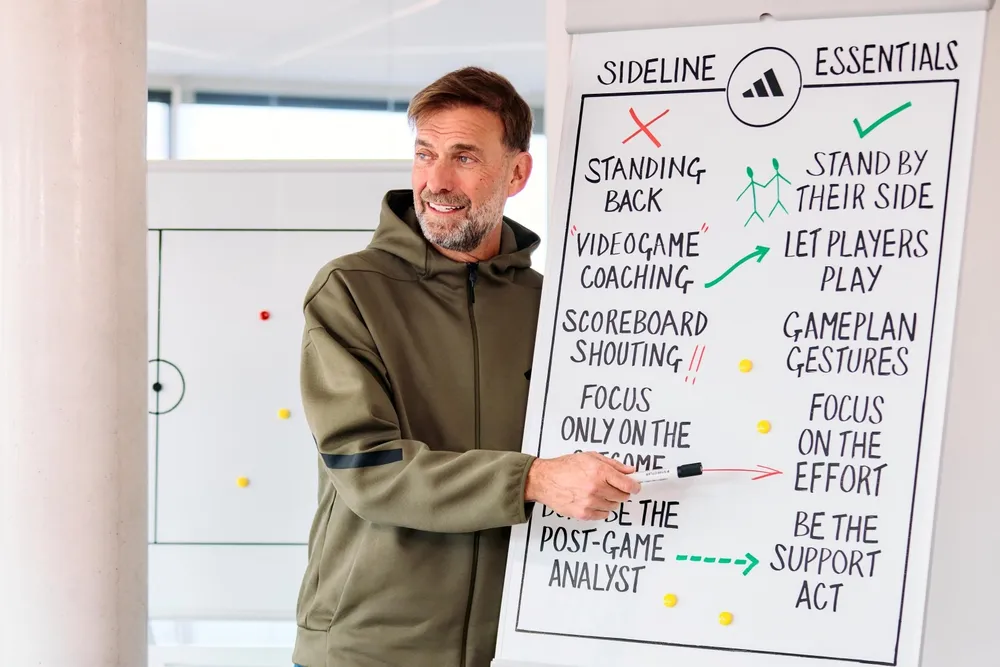 SIDELINE ESSENTIALS
STANDING
BACK
STAND BY
THEIR SIDE
"VIDEOGAME"
COACHING
LET PLAYERS
PLAY
SCOREBOARD
SHOUTING!!
GAMEPLAN
GESTURES
FOCUS
ONLY ON THE
FOCUS
ON THE
EFFORT
BE THE
POST-GAME
ANALYST
BE THE
SUPPORT
ACT